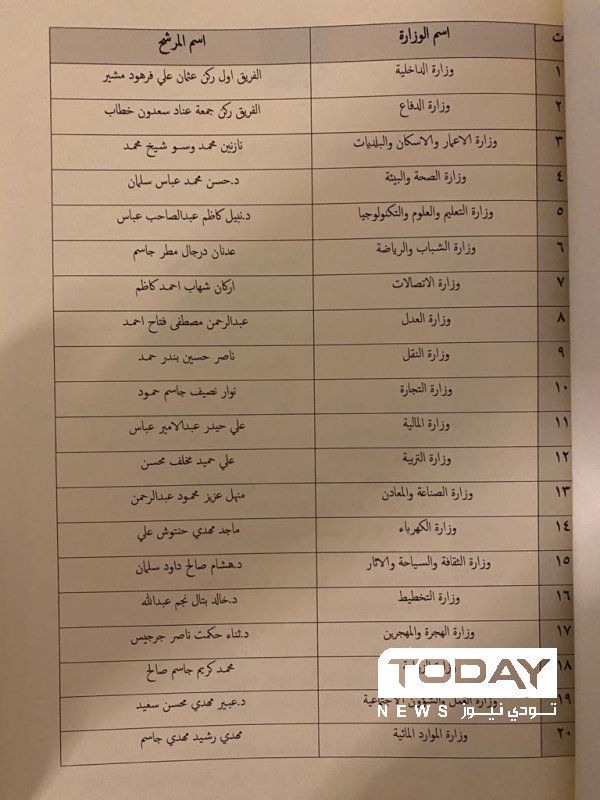 ت اسم الوزارة اسم المرشح
١ وزارة الداخلية الفريق اول ركن عثمان علي فرهود مشير
٢ وزارة الدفاع الفريق ركن جمعة عناد سعدون خطاب
٣ وزارة الاعمار والاسكان والبلديات نازنين محمد وسو شيخ محمد
٤ وزارة الصحة والبيئة د.حسن محمد عباس سلمان
٥ وزارة التعليم والعلوم والتكنولوجيا د.نبيل كاظم عبدالصاحب عباس
٦ وزارة الشباب والرياضة عدنان درجال مطر جاسم
٧ وزارة الاتصالات اركان شهاب احمد كاظم
٨ وزارة العدل عبدالرحمن مصطفى فتاح احمد
٩ وزارة النقل ناصر حسين بندر حمد
١٠ وزارة التجارة نوار نصيف جاسم حمود
١١ وزارة المالية علي حيدر عبدالامير عباس
١٢ وزارة التربية علي حميد مخلف محسن
١٣ وزارة الصناعة والمعادن منهل عزيز محمود عبدالرحمن
١٤ وزارة الكهرباء ماجد مهدي حنتوش علي
١٥ وزارة الثقافة والسياحة والاثار د.هشام صالح داود سلمان
١٦ وزارة التخطيط د.خالد بتال نجم عبدالله
١٧ وزارة الهجرة والمهجرين د.ثناء حكمت ناصر جرجيس
١٨ وزارة محمد كريم جاسم صالح
١٩ وزارة العمل والشؤون الاجتماعية د.عبير مهدي محسن سعيد
٢٠ وزارة الموارد المائية مهدي رشيد مهدي جاسم
TODAY
NEWS تودي نيوز